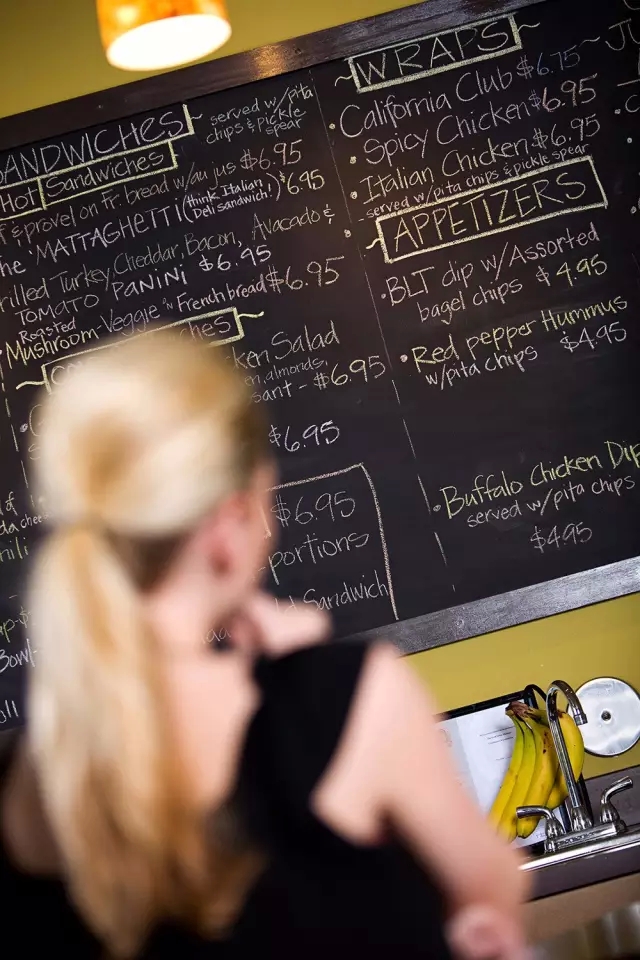 SANDWICHES ~ served w/pita
chips & pickle
spear
Hot Sandwiches
& provel on Fr. bread w/au jus $6.95
the 'MATTAGHETTI (think Italian Deli sandwich!) $6.95
Grilled Turkey, Cheddar, Bacon, Avacado &
TOMATO PANINI $6.95
Roasted
Mushroom-Veggie on French bread $6.95
ches
ken Salad
almonds,
sant - $6.95
$6.95
$6.95
portions
Sandwich
Bowl-
~ WRAPS ~
California Club $6.75 ~
Spicy Chicken $6.95
Italian Chicken $6.95
served w/pita chips & pickle spear
APPETIZERS
BLT dip w/Assorted
bagel chips $4.95
Red pepper Hummus
w/pita chips $4.95
Buffalo Chicken Dip
served w/pita chips
$4.95